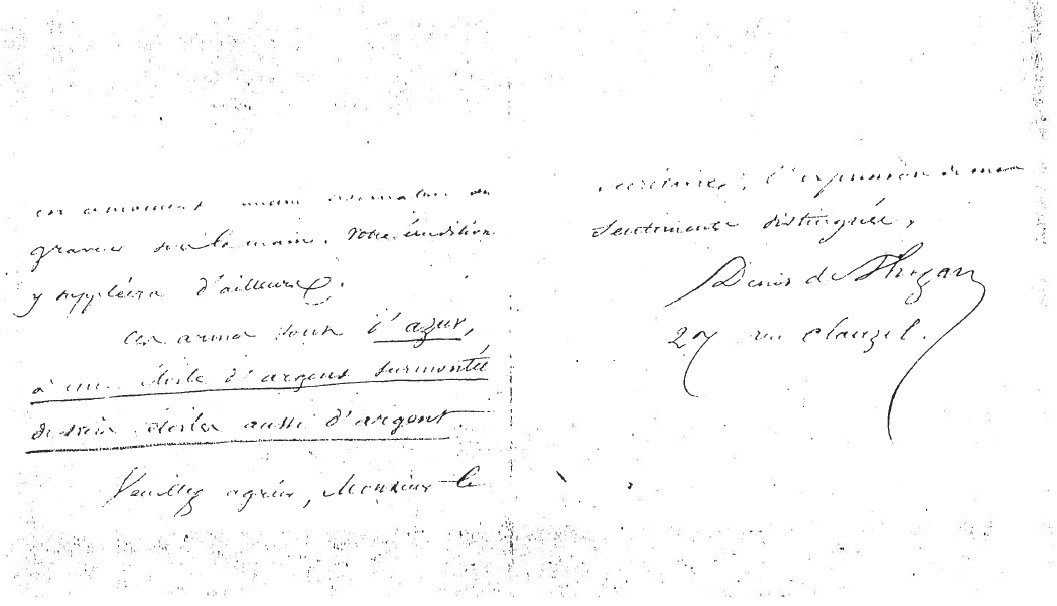 en ce moment
gravés sur la main. Votre érudition
y suppléera d'ailleurs.
Ces armes sont d'azur,
à une étoile d'argent surmontée
de trois étoiles aussi d'argent.
Veuillez agréer, Monsieur le
secrétaire, l'expression de mes
sentiments distingués,
Denis de Thezan
27 rue Clauzel.